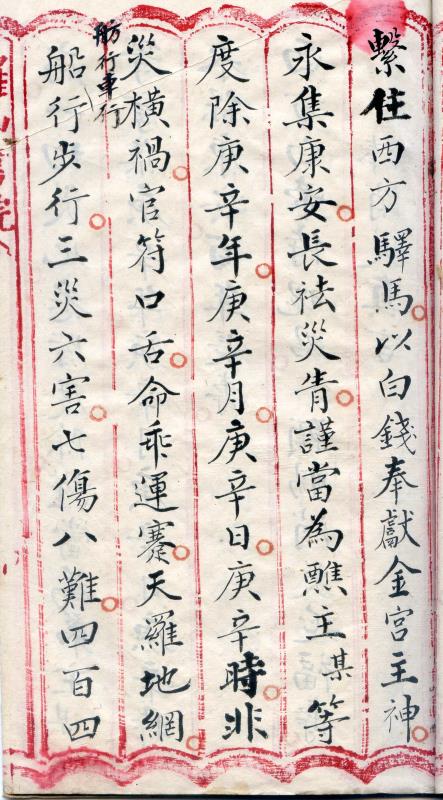 繫住西方驛馬以白錢奉獻金宮主神
永集康安長祛災眚謹當為醮主某等
度除庚辛年庚辛月庚辛日庚辛時非
災橫禍官符口舌命乖運蹇天羅地網
舫行車行
船行步行三災六害七傷八難四百四